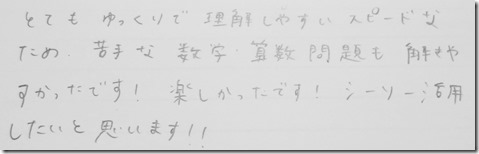 とても ゆっくりで 理解しやすい スピードな
ため、苦手な 数字・算数問題も 解きや
すかったです! 楽しかったです! シーソー活用
したいと思います!!